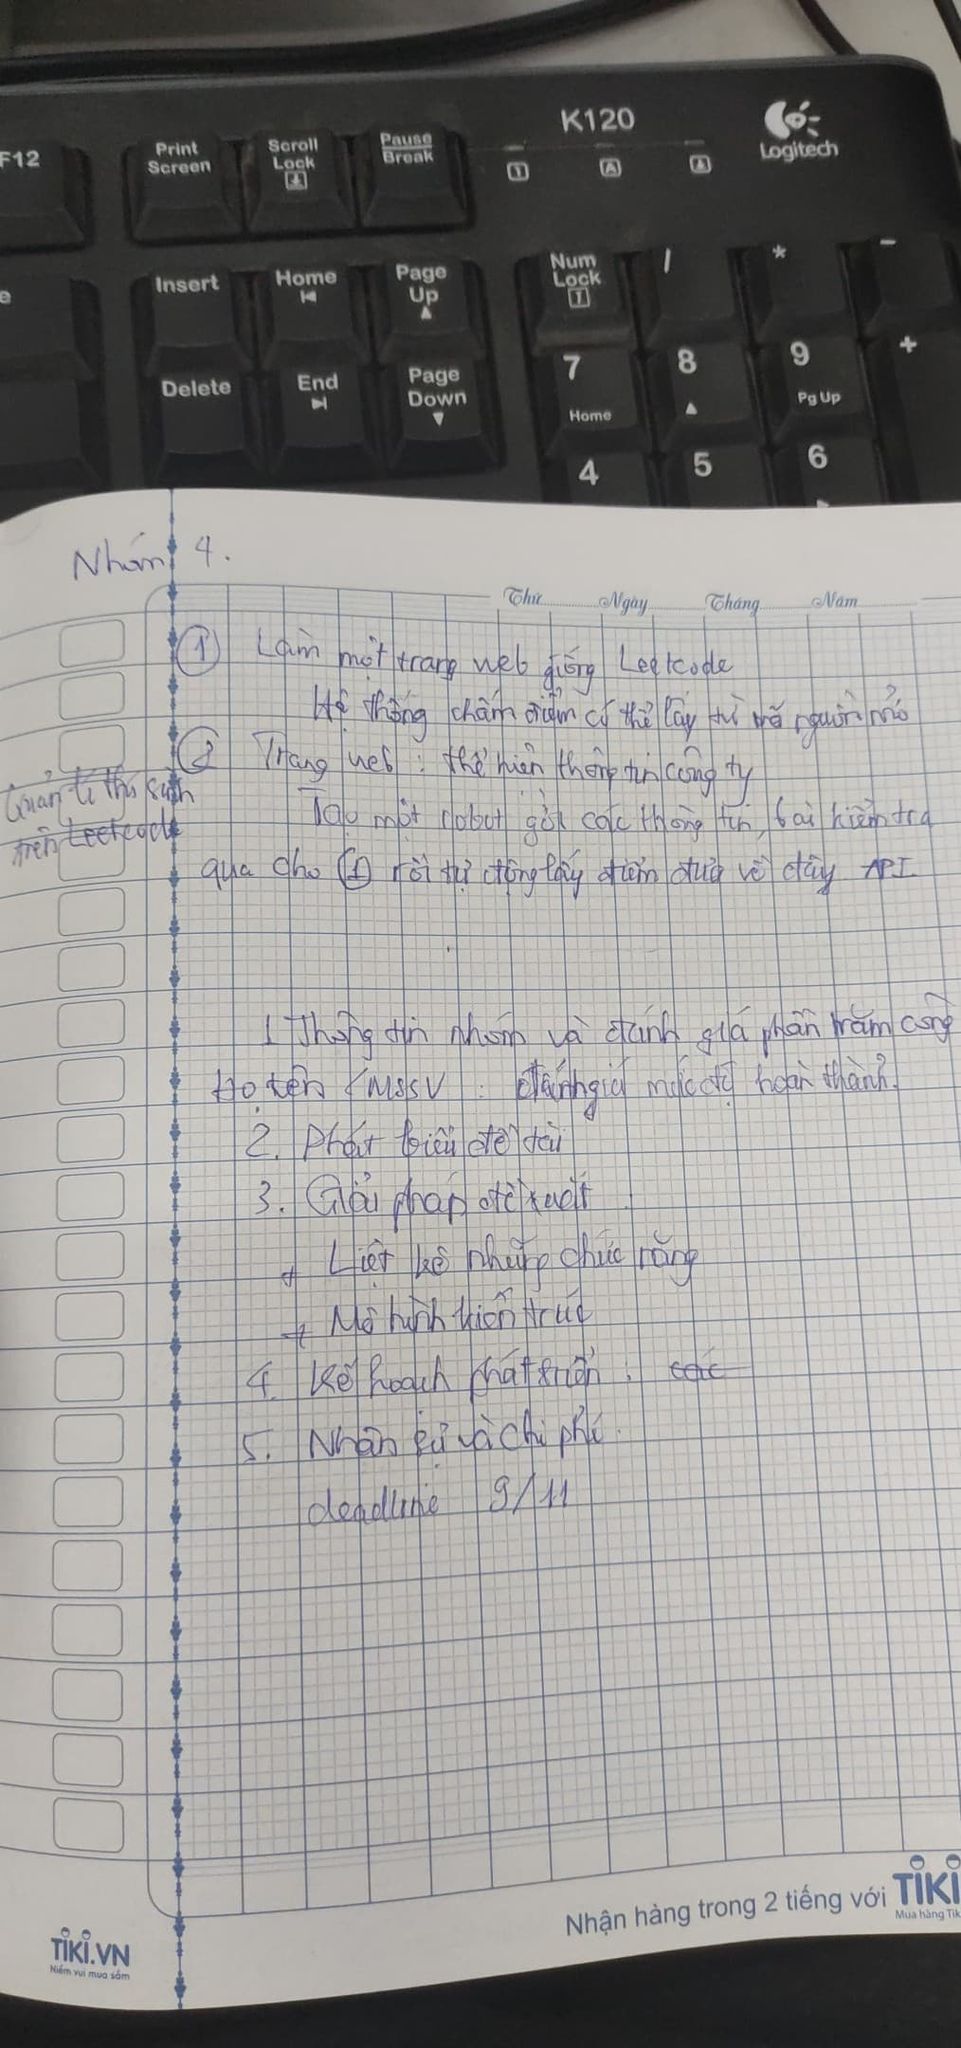 F12
Print Screen
Scroll Lock
Pause Break
K120
Logitech
1
A
Insert
Home
Page Up
Num Lock
1
/
*
-
+
Delete
End
Page Down
7 Home
8
9 Pg Up
4
5
6
Nhóm 4.
Thứ Ngày Tháng Năm
1 Làm một trang web giống Leetcode
Hệ thống chấm điểm có thể lấy từ mã nguồn mở
2 Trang web: thể hiện thông tin công ty
Quản lí thí sinh
trên Leetcode
Tạo một robot gửi các thông tin, bài kiểm tra
qua cho 1 rồi tự động lấy điểm đưa về đây API
1 Thông tin nhóm và đánh giá phần trăm công
Họ tên / MSSV: Đánh giá mức độ hoàn thành.
2. Phát biểu đề tài
3. Giải pháp đề xuất
+ Liệt kê những chức năng
+ Mô hình kiến trúc
4. Kế hoạch phát triển: các
5. Nhân sự và chi phí.
deadline 9/11
Nhận hàng trong 2 tiếng với TIKI
Mua hàng Tik
TIKI.VN
Niềm vui mua sắm